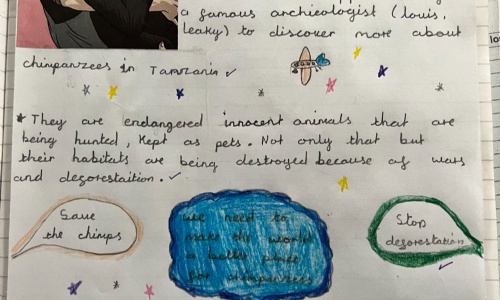 a famous archieologist (louis,
leaky) to discover more about
chimpanzees in Tanzania
* They are endangered innocent animals that are
being hunted, kept as pets. Not only that but
their habitats are being destroyed because of wars
and deforestaition.
Save
the chimps
we need to
make the world
a better place
for chimpanzees
Stop
deforestation